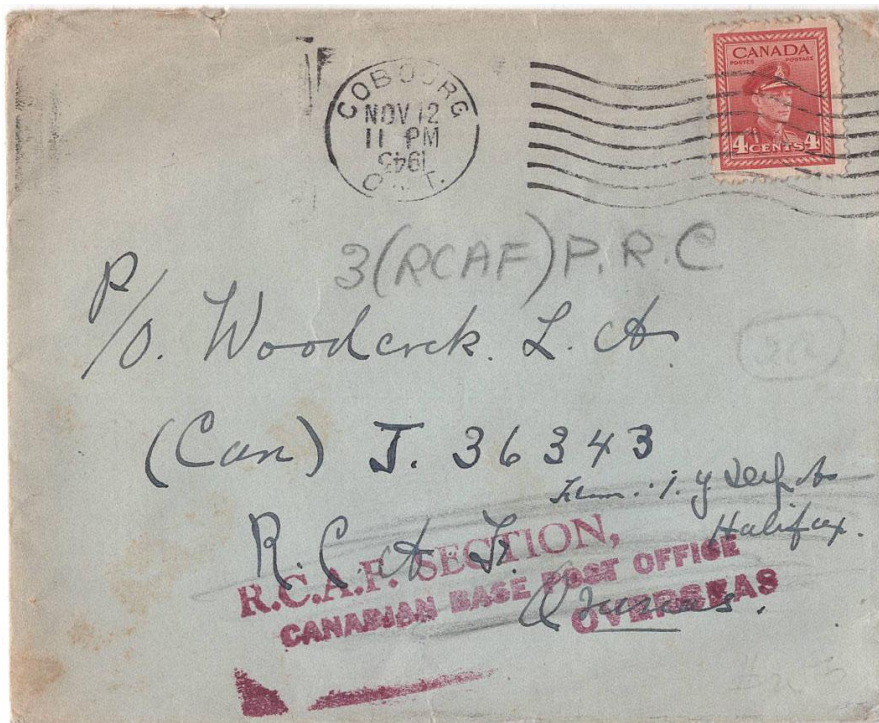 COBOURG
NOV 12
11 PM
1943
ONT.
CANADA
POSTES POSTAGE
4 CENTS 4
3 (RCAF) P.R.C
P/O. Woodcock. L. A
(Can) J. 36343
R.C.A.F.
Halifax.
R.C.A.F. SECTION,
CANADIAN BASE POST OFFICE
OVERSEAS
Overseas.